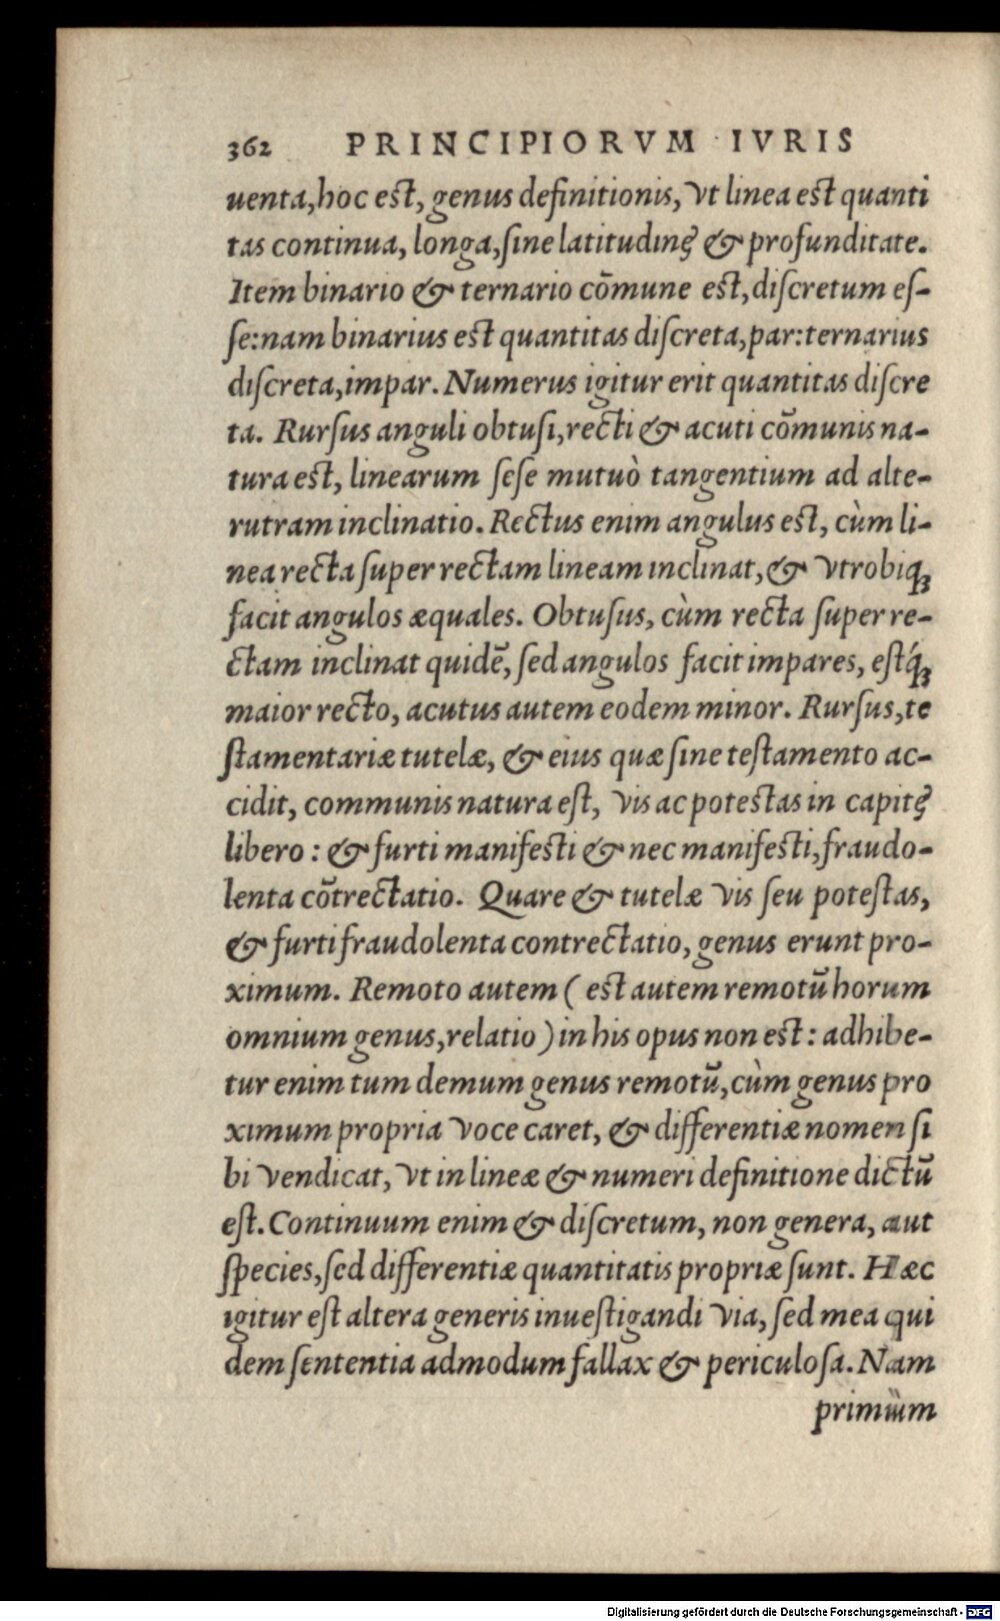 362 PRINCIPIORVM IVRIS
uenta, hoc est, genus definitionis, vt linea est quanti
tas continua, longa, sine latitudinę & profunditate.
Item binario & ternario cōmune est, discretum es-
se: nam binarius est quantitas discreta, par: ternarius
discreta, impar. Numerus igitur erit quantitas discre
ta. Rursus anguli obtusi, recti & acuti cōmunis na-
tura est, linearum sese mutuò tangentium ad alte-
rutram inclinatio. Rectus enim angulus est, cùm li-
nea recta super rectam lineam inclinat, & vtrobiq;
facit angulos æquales. Obtusus, cùm recta super re-
ctam inclinat quidē, sed angulos facit impares, estq́;
maior recto, acutus autem eodem minor. Rursus, te
stamentariæ tutelæ, & eius quæ sine testamento ac-
cidit, communis natura est, vis ac potestas in capitę
libero: & furti manifesti & nec manifesti, fraudo-
lenta cōtrectatio. Quare & tutelæ vis seu potestas,
& furti fraudolenta contrectatio, genus erunt pro-
ximum. Remoto autem (est autem remotū horum
omnium genus, relatio) in his opus non est: adhibe-
tur enim tum demum genus remotū, cùm genus pro
ximum propria voce caret, & differentiæ nomen si
bi vendicat, vt in lineæ & numeri definitione dictū
est. Continuum enim & discretum, non genera, aut
species, sed differentiæ quantitatis propriæ sunt. Hæc
igitur est altera generis inuestigandi via, sed mea qui
dem sententia admodum fallax & periculosa. Nam
primùm
Digitalisierung gefördert durch die Deutsche Forschungsgemeinschaft - DFG